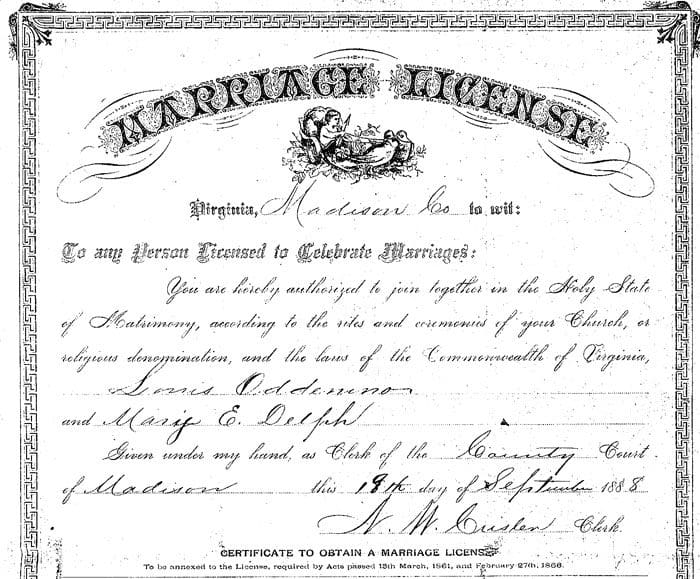 MARRIAGE LICENSE
Virginia, Madison Co to wit:
To any Person Licensed to Celebrate Marriages:
You are hereby authorized to join together in the Holy State
of Matrimony, according to the rites and ceremonies of your Church, or
religious denomination, and the laws of the Commonwealth of Virginia,
Louis Oddenino
and Mary E. Delph
Given under my hand, as Clerk of the County Court
of Madison this 18th day of September 1888
N. W. Crisler Clerk.
CERTIFICATE TO OBTAIN A MARRIAGE LICENSE
To be annexed to the License, required by Acts passed 15th March, 1861, and February 27th, 1866.